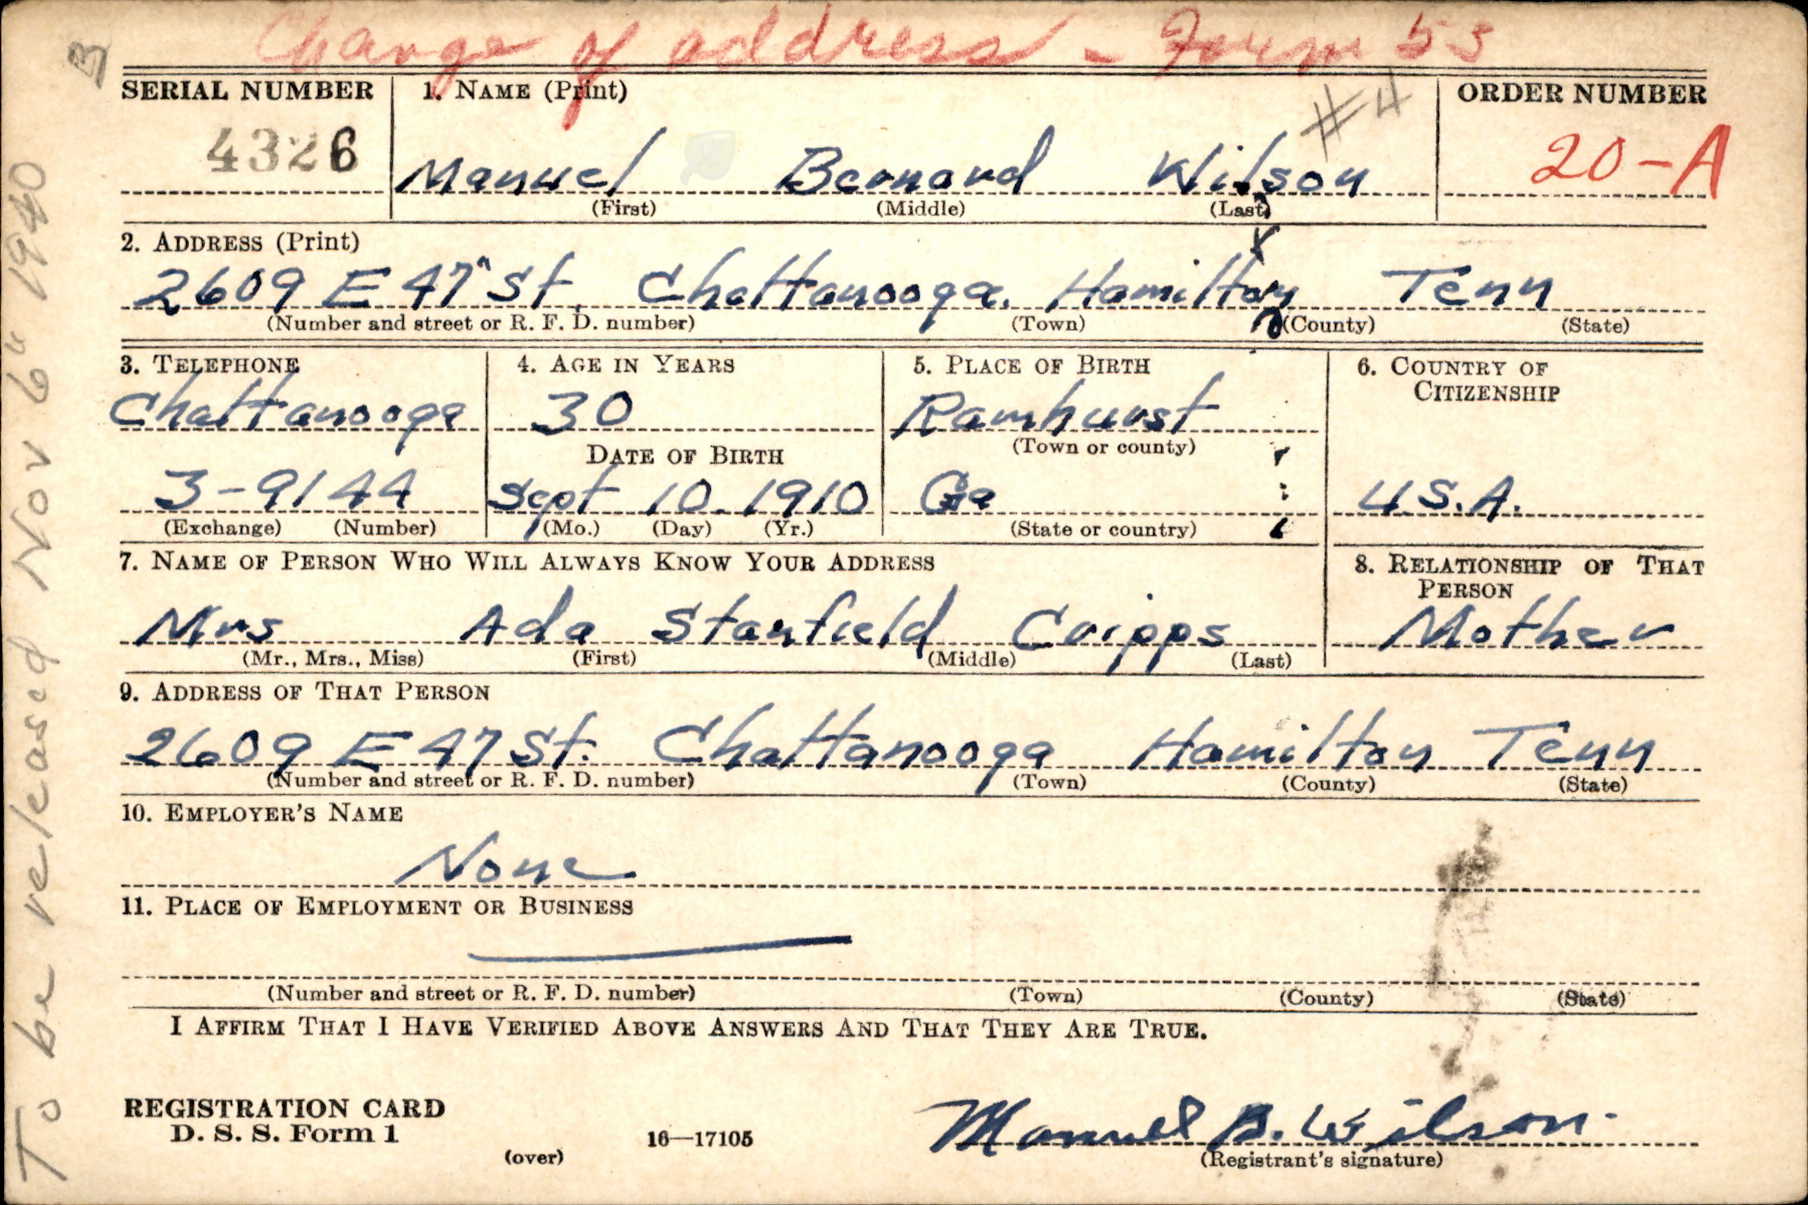 Change of address - Form 55
SERIAL NUMBER 1. NAME (Print) #4 ORDER NUMBER
4326 Manuel Bernard Wilson 20-A
(First) (Middle) (Last)
2. ADDRESS (Print)
2609 E 47" St. Chattanooga. Hamilton Tenn
(Number and street or R. F. D. number) (Town) (County) (State)
3. TELEPHONE 4. AGE IN YEARS 5. PLACE OF BIRTH 6. COUNTRY OF
CITIZENSHIP
Chattanooga 30 Ramhurst
DATE OF BIRTH (Town or county)
3-9144 Sept 10. 1910 Ga U.S.A.
(Exchange) (Number) (Mo.) (Day) (Yr.) (State or country)
7. NAME OF PERSON WHO WILL ALWAYS KNOW YOUR ADDRESS 8. RELATIONSHIP OF THAT
PERSON
Mrs Ada Stanfield Cripps Mother
(Mr., Mrs., Miss) (First) (Middle) (Last)
9. ADDRESS OF THAT PERSON
2609 E 47 St. Chattanooga Hamilton Tenn
(Number and street or R. F. D. number) (Town) (County) (State)
10. EMPLOYER'S NAME
None
11. PLACE OF EMPLOYMENT OR BUSINESS
(Number and street or R. F. D. number) (Town) (County) (State)
I AFFIRM THAT I HAVE VERIFIED ABOVE ANSWERS AND THAT THEY ARE TRUE.
REGISTRATION CARD
D. S. S. Form 1 16—17105 Manuel B. Wilson.
(over) (Registrant's signature)
To be released Nov 6" 1940